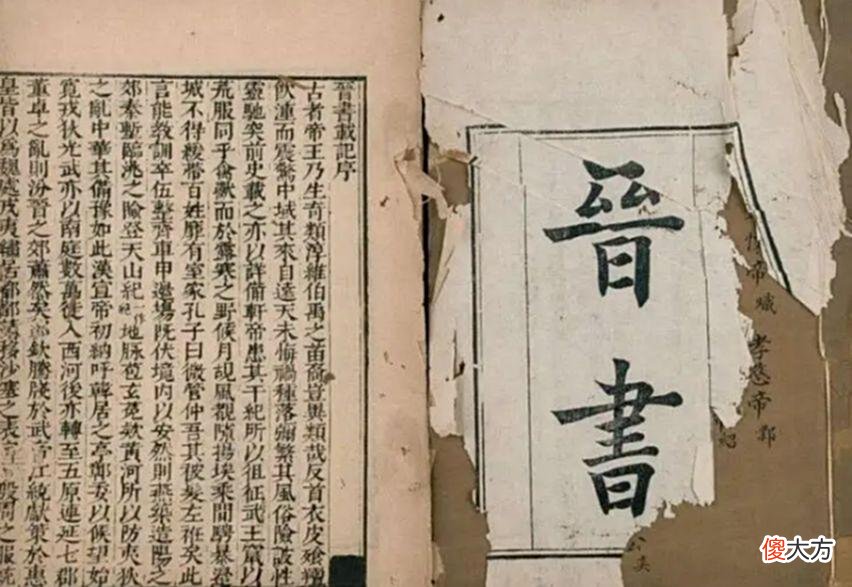 晉書
帝
孝愍帝鄴
紀
晉書載記序
古者帝王乃生奇類淳維伯禹之苗裔豈異類哉反首衣皮飧羶
飲湩而震驚中域其來自遠天未悔禍種落彌繁其風俗險詖性
靈馳突前史載之亦以詳備軒帝患其干紀所以徂征武王竄以
荒服同乎禽獸而於露寒之野候月覘風覩隙揚埃乘間騁暴邊
城不得緩帶百姓靡有室家孔子曰微管仲吾其被髮左衽矣此
言能教訓卒伍整齊車甲邊場既伏境內以安然則燕築造陽之
郊秦塹臨洮之險登天山紀地脉苞玄菟款黃河所以防夷狄
之亂中華其備豫如此漢宣帝初納呼韓居之亭鄣委以候望始
寬戎狄光武亦以南庭數萬徙入西河後亦轉至五原連延七郡
董卓之亂則汾晉之郊蕭然矣郭欽騰牋於武帝江統獻策於惠
皇皆以爲魏處戎夷繡居都鄙請移沙塞之表殷周之服統
傻大方